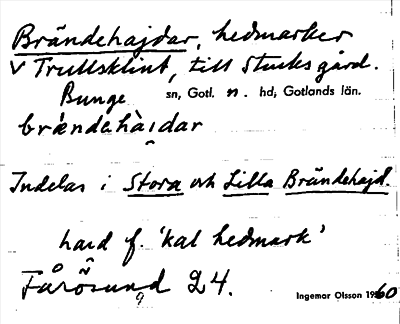 Brändehajdar, hedmarker
V Trullsklint, till Stucks gård.
Bunge sn, Gotl. n. hd, Gotlands län.
brǽndahàidar
Indelas i Stora och Lilla Brändehajd.
haid f. 'kal hedmark'
Fårösund 24.
Ingemar Olsson 1960